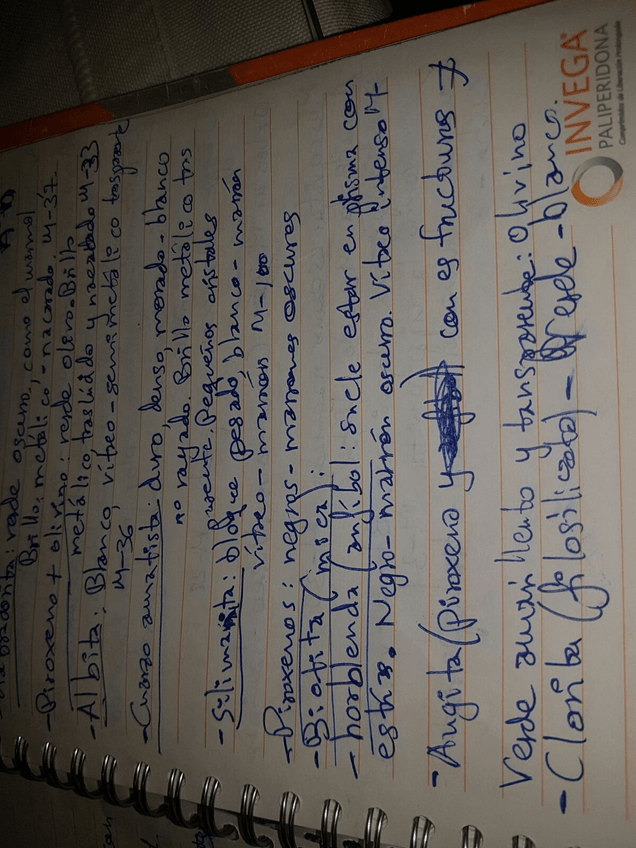 verde oscuro, como
Brillo: metalico - nacarado. M-37.
- Piroxeno + olivino: verde olivo. Brillo
metálico traslúcido y nacarado M-33
- Albita: Blanco, vítreo - semimetálico trasparente
M-36
- Cuarzo amatista: duro, denso, morado - blanco
no rayado. Brillo metálico tras
parente. Pequeños cristales
- Silimanita: bloque pesado, blanco - marrón
vítreo - marrón M-100
- Piroxenos: negros - marrones oscuros
- Biotita (mica):
- horblenda (anfibol: suele estar en prisma con
estrías. Negro - marrón oscuro. Vítreo intenso M-
- Augita (piroxeno y con es fracturas
Verde amarillento y transparente: Olivino
- Clorita (filosilicato) - Verde - blanco.
INVEGA®
PALIPERIDONA
Comprimidos de Liberación Prolongada